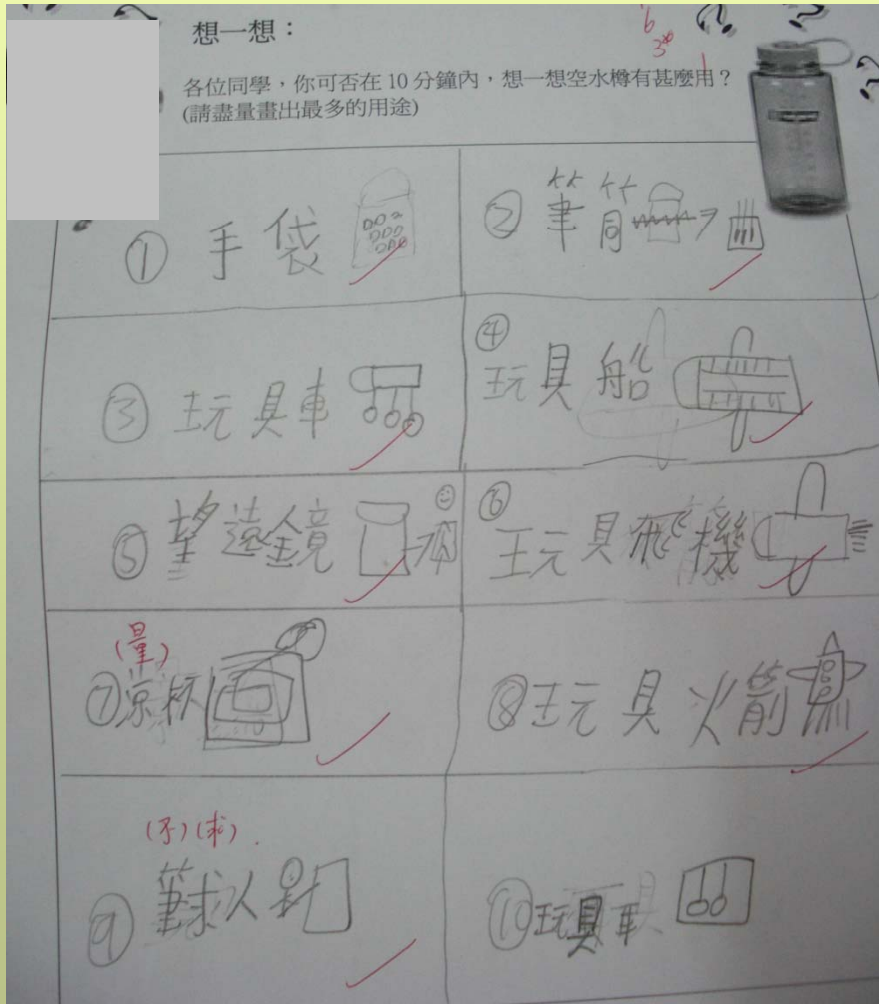 想一想：
各位同學，你可否在 10 分鐘內，想一想空水樽有甚麼用？
(請盡量畫出最多的用途)
① 手袋
② 筆筒
③ 玩具車
④ 玩具船
⑤ 望遠鏡
⑥ 玩具飛機
(量)
⑦ 杯
⑧ 玩具火箭
(求)
⑨ 求人
⑩ 玩具車